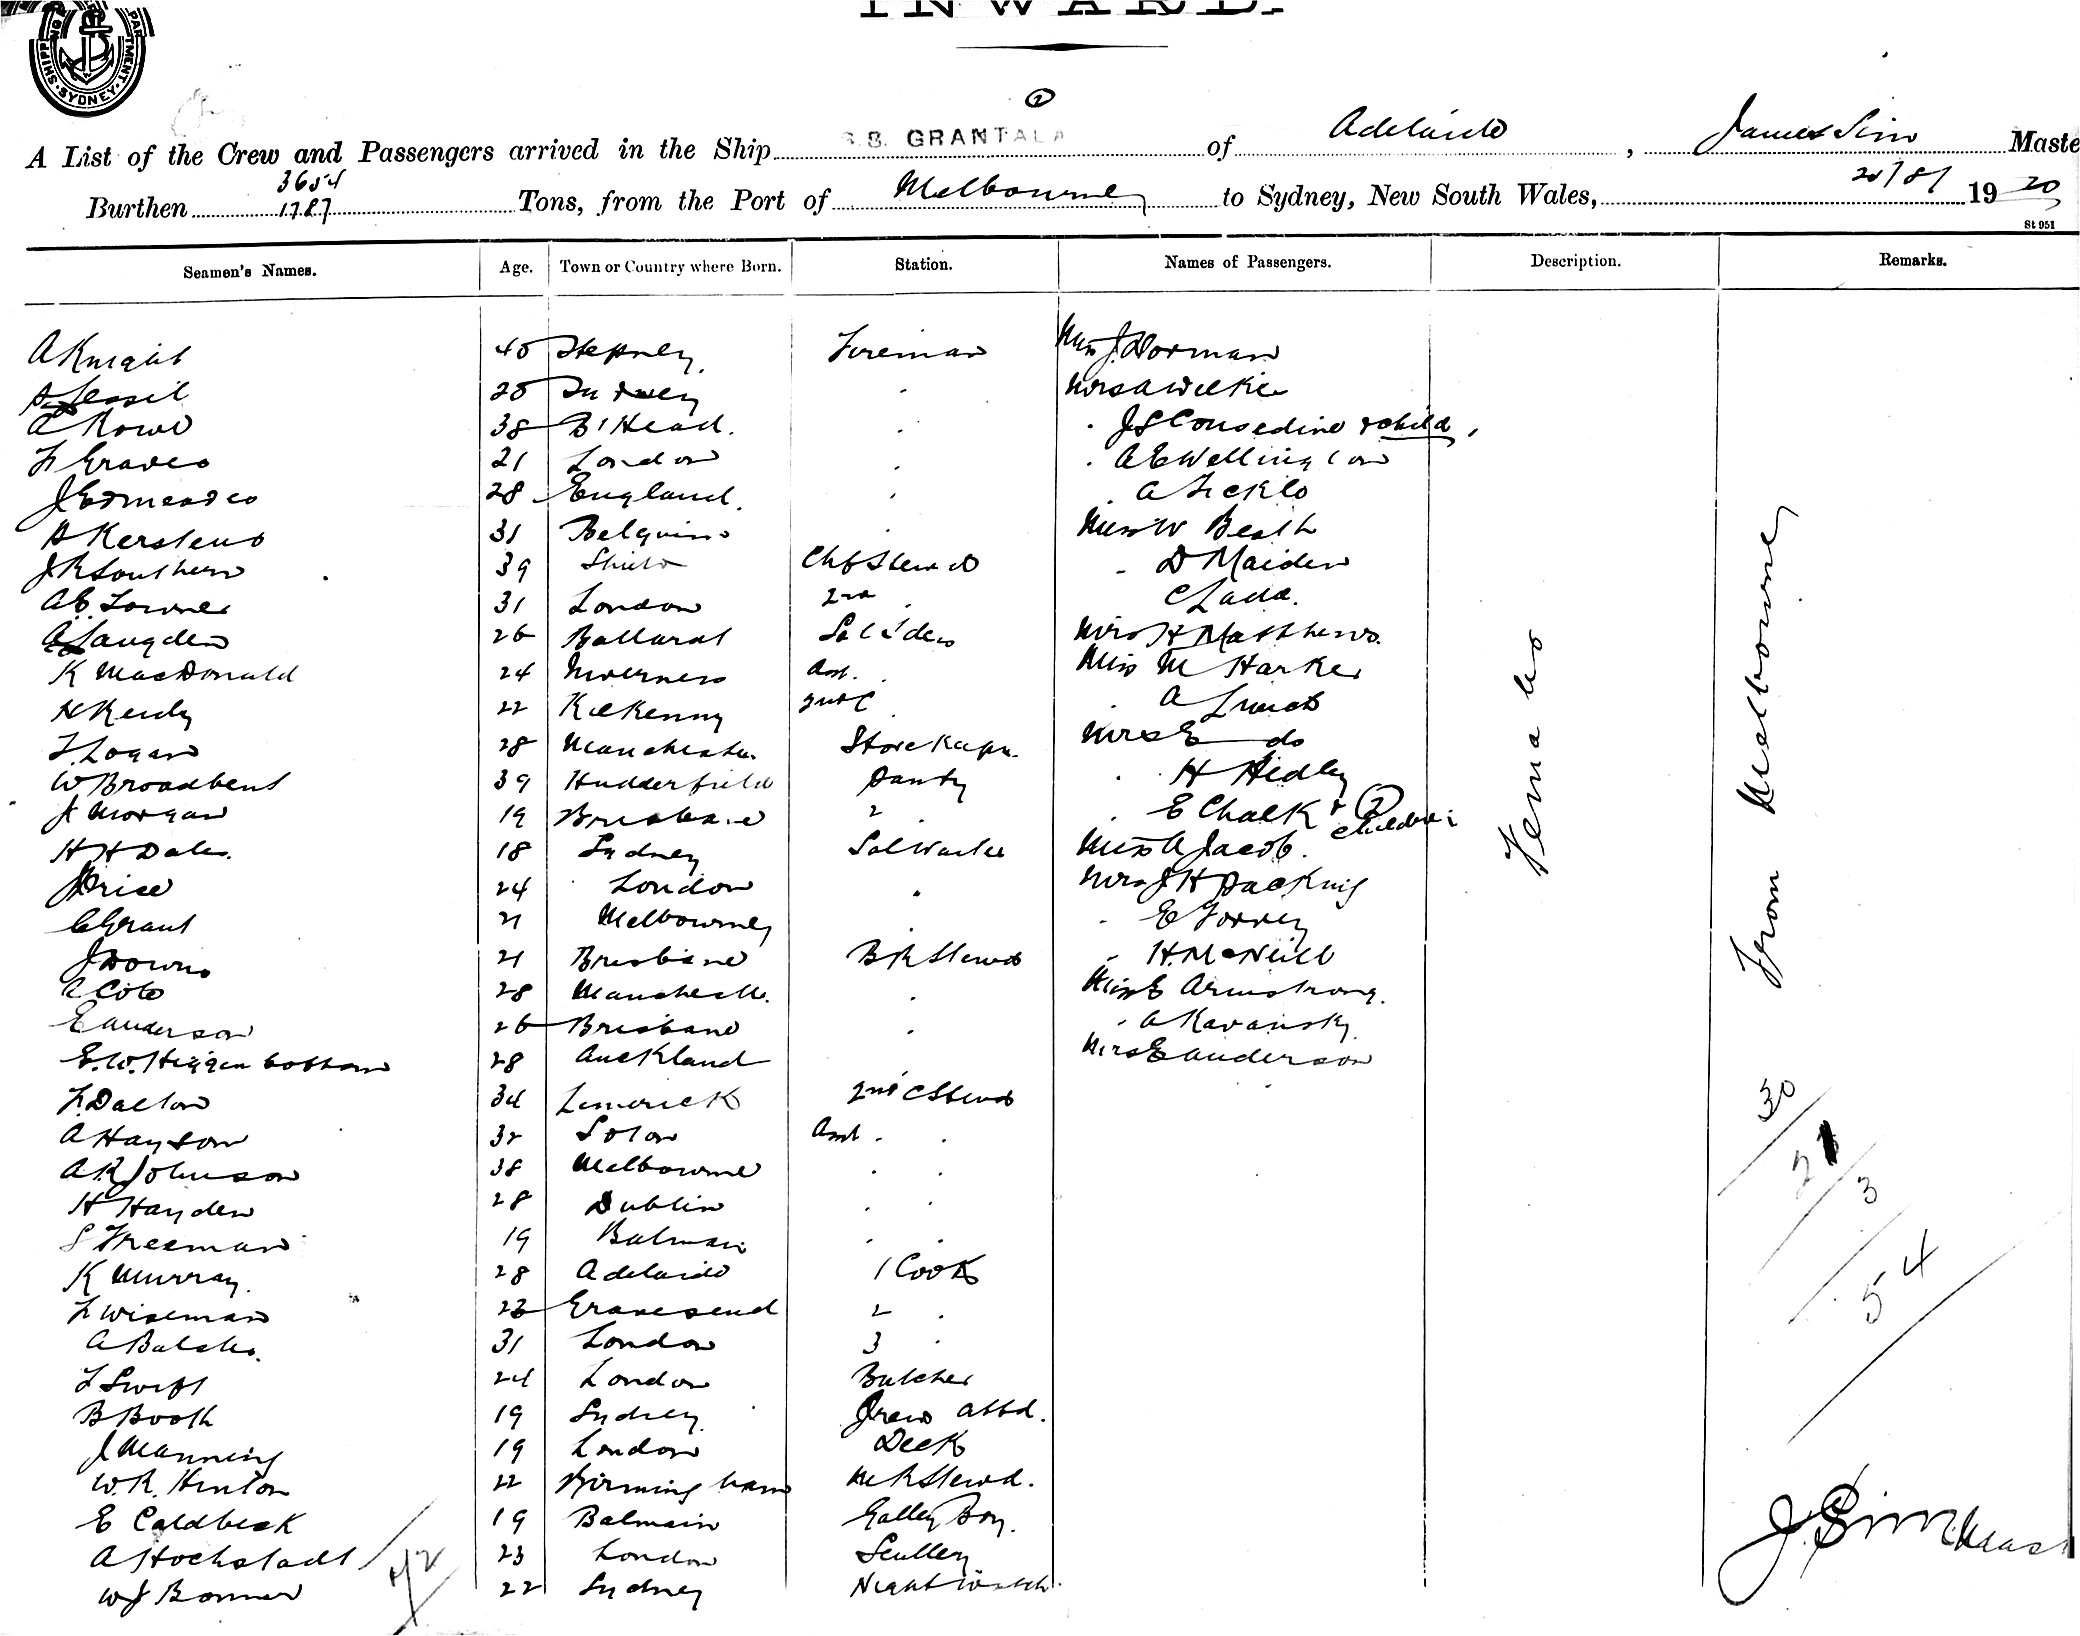 INWARD.
SHIPPING DEPARTMENT. SYDNEY.
2
A List of the Crew and Passengers arrived in the Ship S.S. GRANTALA of Adelaide, James Sim Maste
Burthen 3654 1787 Tons, from the Port of Melbourne to Sydney, New South Wales, 20/8/ 1920
St 951
Seamen's Names. Age. Town or Country where Born. Station. Names of Passengers. Description. Remarks.
A Knight 40 Stepney Fireman Miss J. Dorman
28 Mrs A Wilkie
A Rowe 38 B'Head. " J S Consedine & child
F Graves 21 London " A E Wellington
J Edmeades 28 England. " A
A Kerstens 31 Belgium Miss W Beath
J R Southern 39 Chf Stewd " D Maiden
A E 31 London 2nd C Ladd.
A Langden 26 Ballarat Mrs H Matthews.
K MacDonald 24 Inverness Asst. Miss M Harker
H Reidy 22 Kilkenny 2nd C " A
F. Logan 28 Manchester Storekeeper Mrs E do
W Broadbent 39 Hudderfield Pantry " H Hedley
J Morgan 19 Brisbane 2 " E Chalk & 2 children
H H Dale 18 Sydney Sal Waiter Miss A Jacob.
J Price 24 London " Mrs J H
C Grant 21 Melbourne " E Torrey
J Downs 21 Brisbane B R Stewd " H. McNeill
C Cole 28 Manchester " Miss E Armstrong.
E Anderson 26 Brisbane " " A Kavansky
E. W. Higginbottom 28 Auckland Mrs E Anderson
F. Dalton 34 Limerick 2nd C Stewd
A Hayson 32 Asst.
A. R Johnson 38 Melbourne
H Hayden 28 Dublin
S Freeman 19 Balmain
K Murray 28 Adelaide 1 Cook
F Wiseman 23 Gravesend 2 "
A 31 London 3 "
F Swift 24 London Butcher
B Booth 19 Sydney Attd.
J Manning 19 London Deck
W. R. Hinton 22 Birmingham M R Stewd.
E Caldbeck 19 Balmain Galley Boy.
A Hochstadt 23 London Scullery
W J Bonner 22 Sydney Night Watch
42
Females
From Melbourne
30
21
3
54
J. Sim Mast